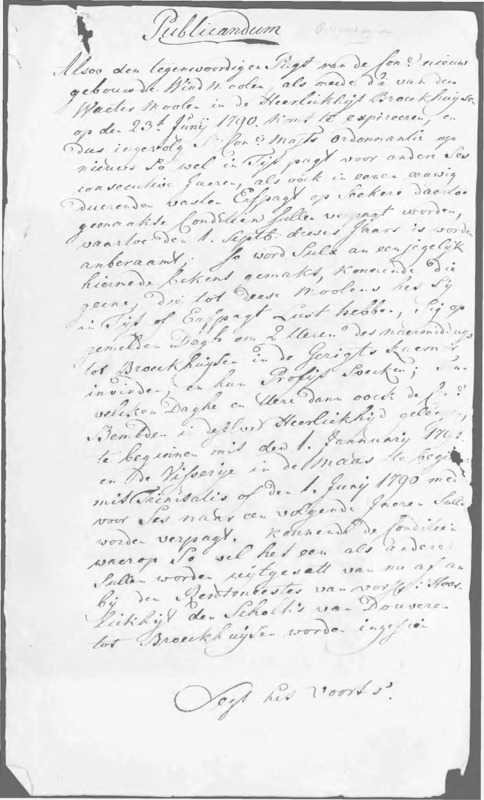 Publicandum
Alsoo den tegenwoordigen Pagt van de Con: nieuw
gebouwde Wind Moolen, als mede die van den
Waeter Moolen in de Heerlickhijt Broeckhuijsen
op den 23.t Junij 1790 komt te expireeren, en
dus ingevolg Con: Maj:ts ordonnantie op
nieuws so wel in Tijt pagt voor andere Ses
consecutive Jaeren, als oock in eenen eeuwig
duerenden vasten Erfpagt op Seekere daertoe
gemaakte Conditien sullen verpagt worden,
waartoe den 1. Septb. deeses Jaars is worden
anberaamt; So word Sulx an een jegelijk
hiermede bekent gemakt, konnende die
geene, die tot deese Moolens het sij
in Tijt of Erfpagt Lust hebben, sig op
gemelden Dagh om 2 Ueren des naermiddags
tot Broeckhuijsen in de Gerigts Kamer
invinden, en hun Profijt Soecken;
welcken Daghe en Uere dann oock de
Bembden in Heerlickhijd
te beginnen met den 1. Jannuarij
en de Visserije in de Maas te
met Trinitatis of den 1. Junij 1790
voor Ses naast een volgende Jaeren Sulle
worden verpagt, konnende de Conditien
waerop So wel het een als andere
Sullen worden uijtgesatt van nu af an
bij den Rentmeester van voors: Heer-
lickhijt den Scholtis van Douveren
tot Broeckhuijsen worden ingesien
Segt het voort s.